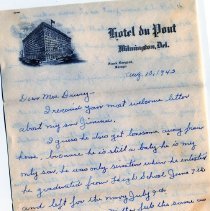 Hotel du Pont
Wilmington, Del.
Aug 10, 1943
Dear Mrs. Dewey -
I received your most welcome letter
about my son Jimmie.
I guess he does get lonesome away from
home, because he is still a baby, he is my
only son, he was only seventeen when he enlisted
he graduated from High School June 7th
and left for the navy July 9th
but the same was